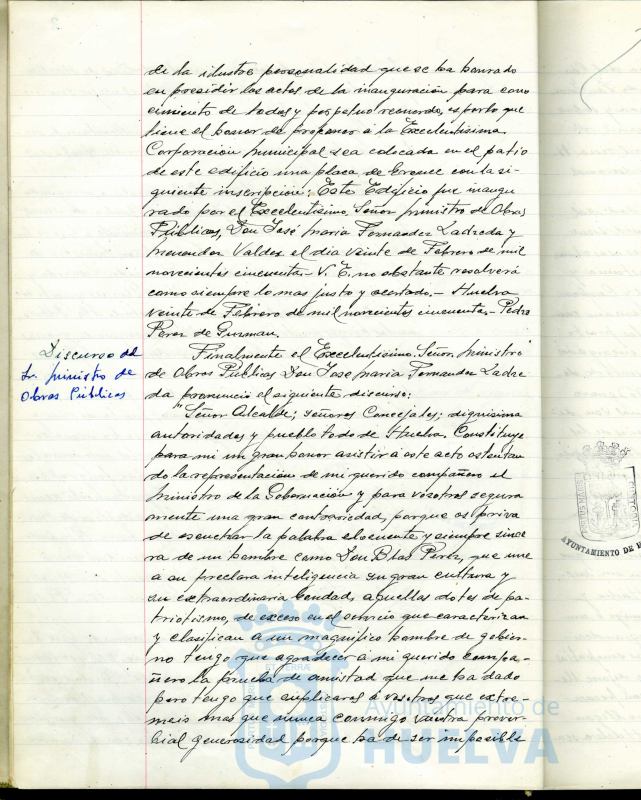 de la ilustre personalidad que se ha honrado
en presidir los actos de la inauguración para cono
cimiento de todos y perpetuo recuerdo, es por lo que
tiene el honor de proponer à la Excelentísima
Corporación Municipal sea colocada en el patio
de este edificio una placa de bronce con la si-
guiente inscripción: Este Edificio fue inaugu
rado por el Excelentísimo Señor Ministro de Obras
Públicas, Don José María Fernandez Ladreda y
Menendez Valdes el dia veinte de Febrero de mil
novecientos cincuenta.- V. E. no obstante resolverá
como siempre lo mas justo y acertado.- Huelva
veinte de Febrero de mil novecientos cincuenta.- Pedro
Perez de Guzman.
Discurso del
Sr. Ministro de
Obras Públicas
Finalmente el Excelentísimo Señor Ministro
de Obras Públicas Don Jose Maria Fernandez Ladre
da pronunció el siguiente discurso:
"Señor Alcalde; señores Concejales; dignisima
autoridades y pueblo todo de Huelva. Constituye
para mi un gran honor asistir á este acto ostentan
do la representación de mi querido compañero el
Ministro de la Gobernación y para vosotros segura
mente una gran contrariedad, porque os priva
de escuchar la palabra elocuente y siempre since
ra de un hombre como Don Blas Perez, que une
á su preclara inteligencia su gran cultura y
su extraordinaria bondad, aquellas dotes de pa-
triotismo, de exceso en el servicio que caracterizan
y clasifican a un magnifico hombre de gobier-
no tengo que agradecer á mi querido compa-
ñero la prueba de amistad que me ha dado
pero tengo que suplicaros á vosotros que extre-
meis mas que nunca conmigo vuestra prover-
bial generosidad porque ha de ser imposible
AYUNTAMIENTO DE H
Ayuntamiento de
HUELVA